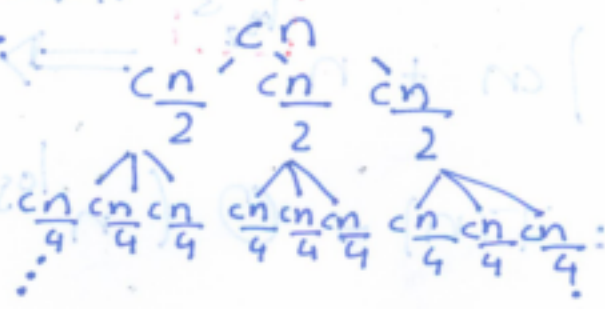 cn
cn/2 cn/2 cn/2
cn/4 cn/4 cn/4 cn/4 cn/4 cn/4 cn/4 cn/4 cn/4